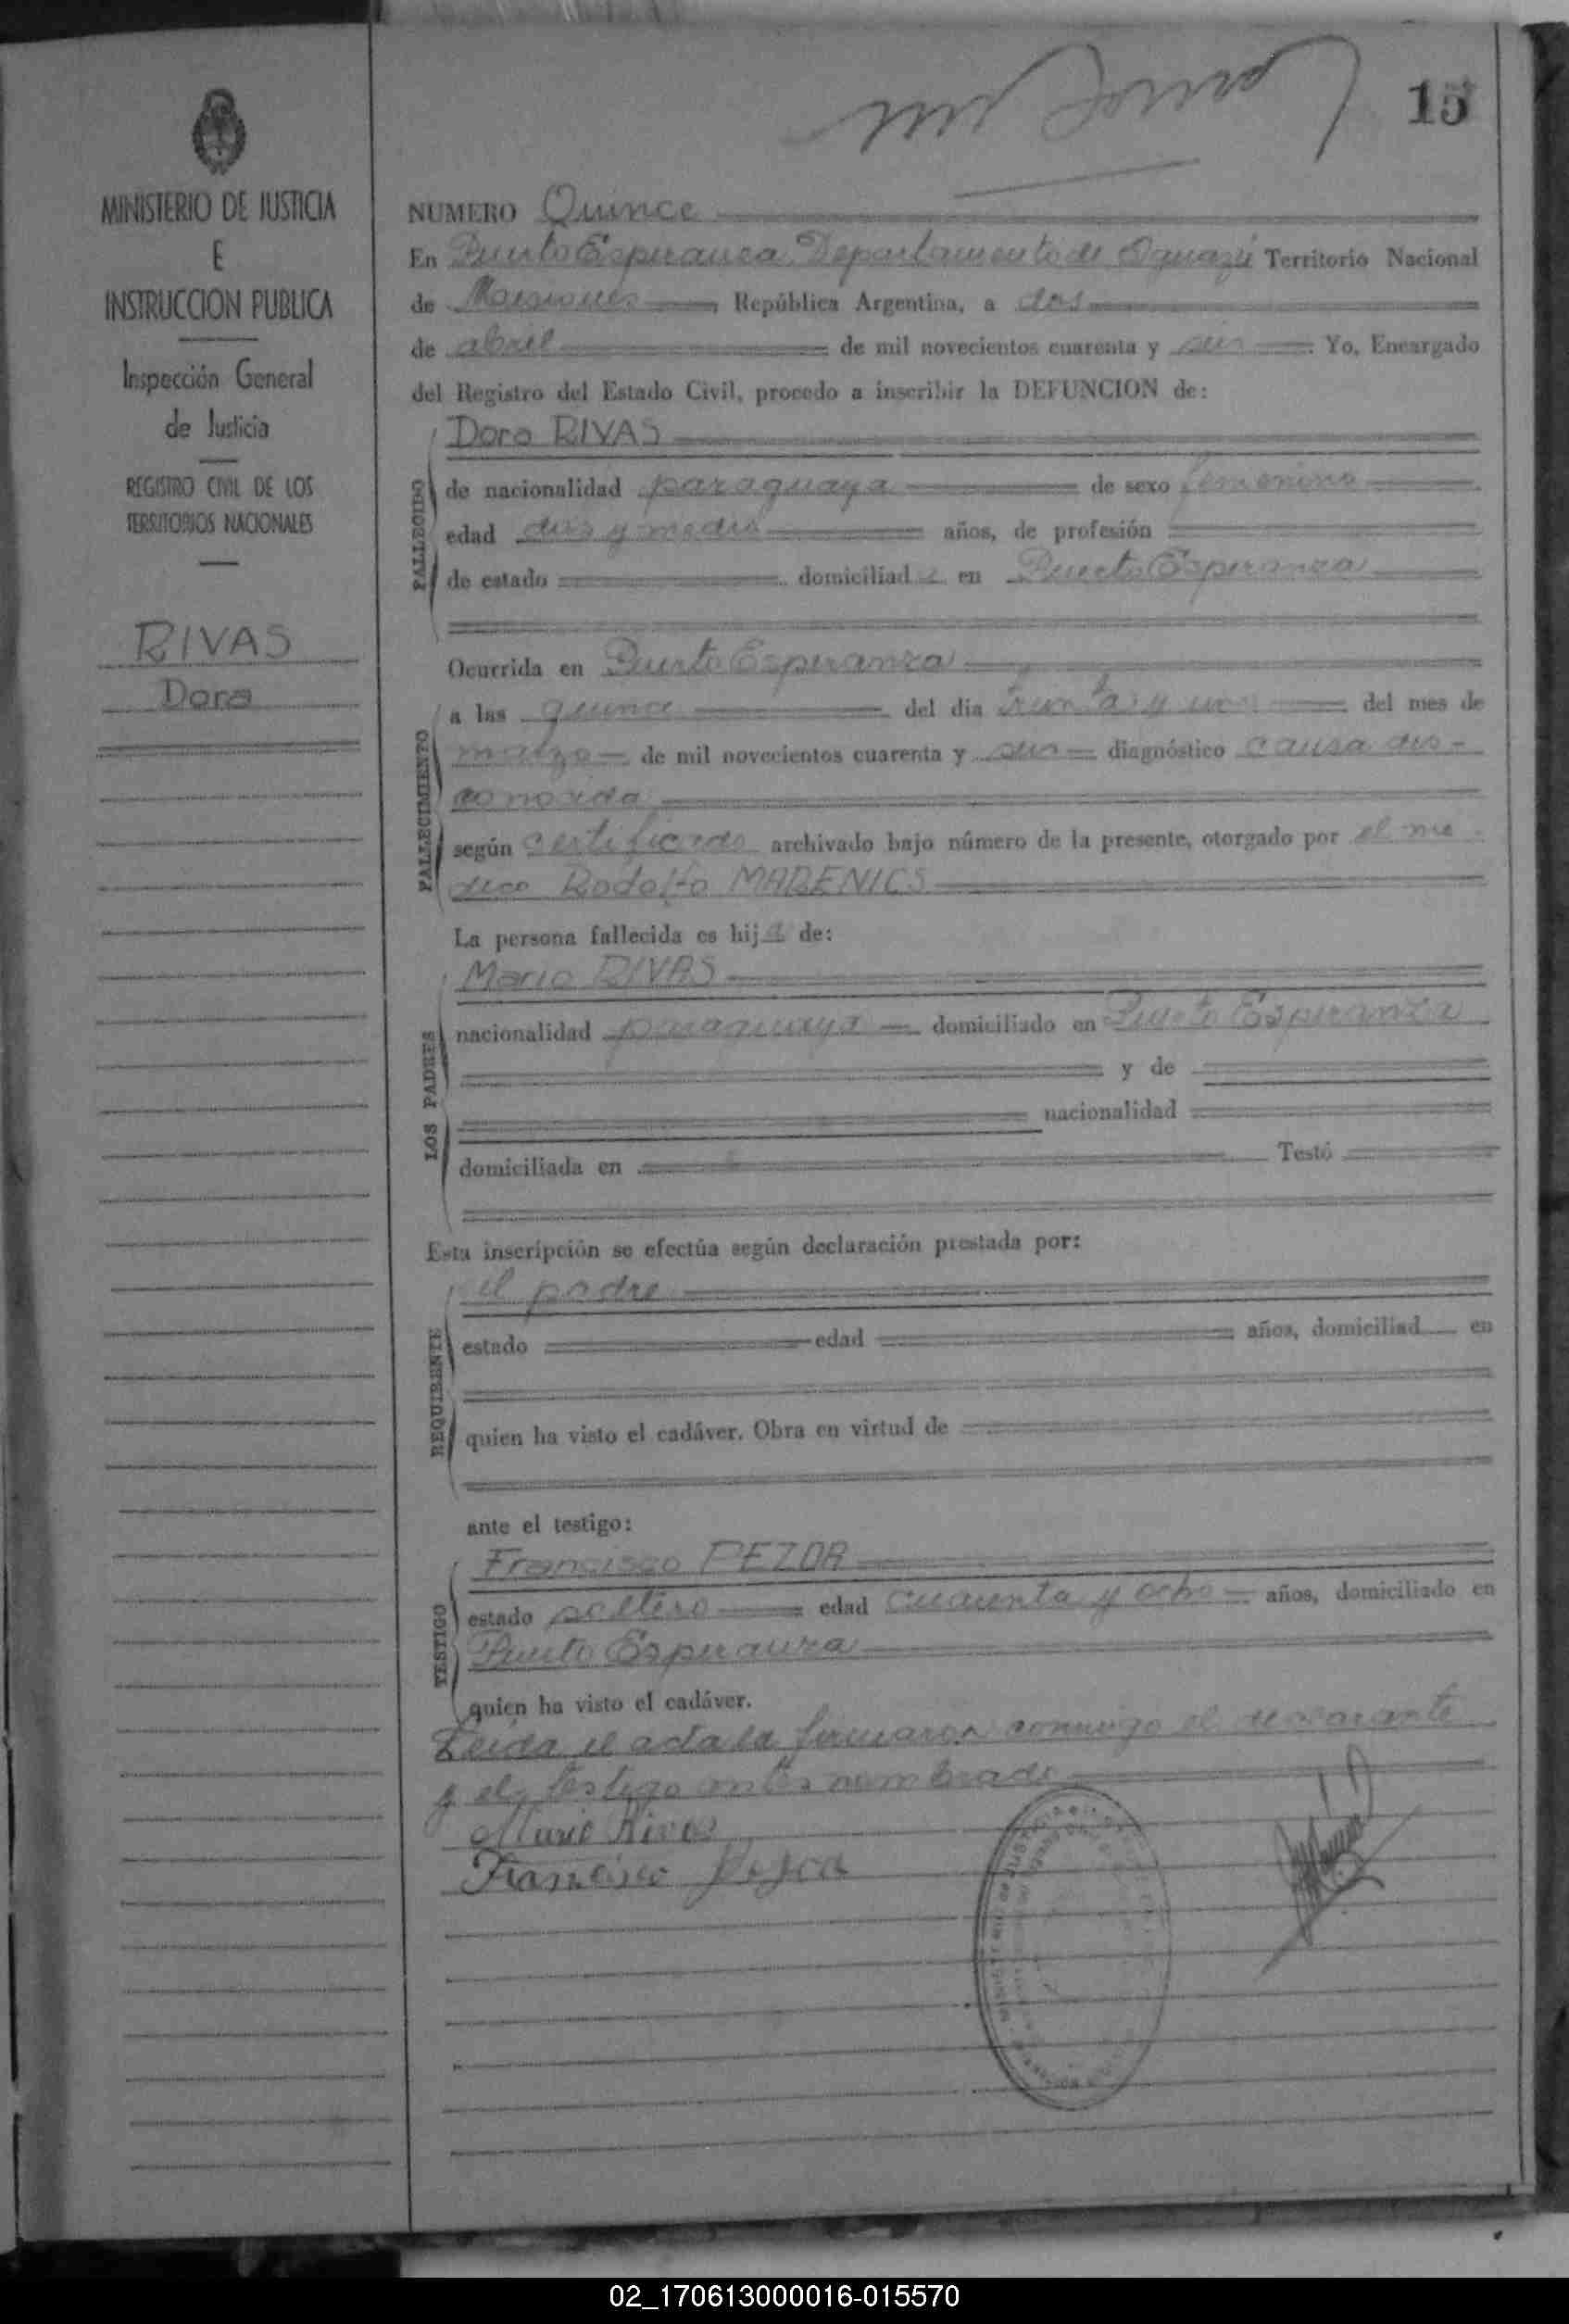 15
MINISTERIO DE JUSTICIA
E
INSTRUCCION PUBLICA
Inspección General
de Justicia
REGISTRO CIVIL DE LOS
TERRITORIOS NACIONALES
RIVAS
Dora
NUMERO Quince
En Puerto Esperanza Departamento de Iguazú Territorio Nacional
de Misiones República Argentina, a dos
de abril de mil novecientos cuarenta y seis Yo, Encargado
del Registro del Estado Civil, procedo a inscribir la DEFUNCION de:
Dora RIVAS
FALLECIDO
de nacionalidad paraguaya de sexo femenino
edad dos y medio años, de profesión
de estado domiciliada en Puerto Esperanza
FALLECIMIENTO
Ocurrida en Puerto Esperanza
a las quince del día treinta y uno del mes de
marzo de mil novecientos cuarenta y seis diagnóstico causa des-
conocida
según certificado archivado bajo número de la presente, otorgado por el me
dico Rodolfo MARENICS
La persona fallecida es hija de:
LOS PADRES
Mario RIVAS
nacionalidad paraguaya domiciliado en Puerto Esperanza
y de
nacionalidad
domiciliada en Testó
Esta inscripción se efectúa según declaración prestada por:
REQUIRENTE
el padre
estado edad años, domiciliad en
quien ha visto el cadáver. Obra en virtud de
ante el testigo:
TESTIGO
Francisco PEZDA
estado soltero edad cuarenta y ocho años, domiciliado en
Puerto Esperanza
quien ha visto el cadáver.
Leída el acta la firmaron conmigo el declarante
y el testigo antes nombrado
Mario Rivas
Francisco
02_170613000016-015570